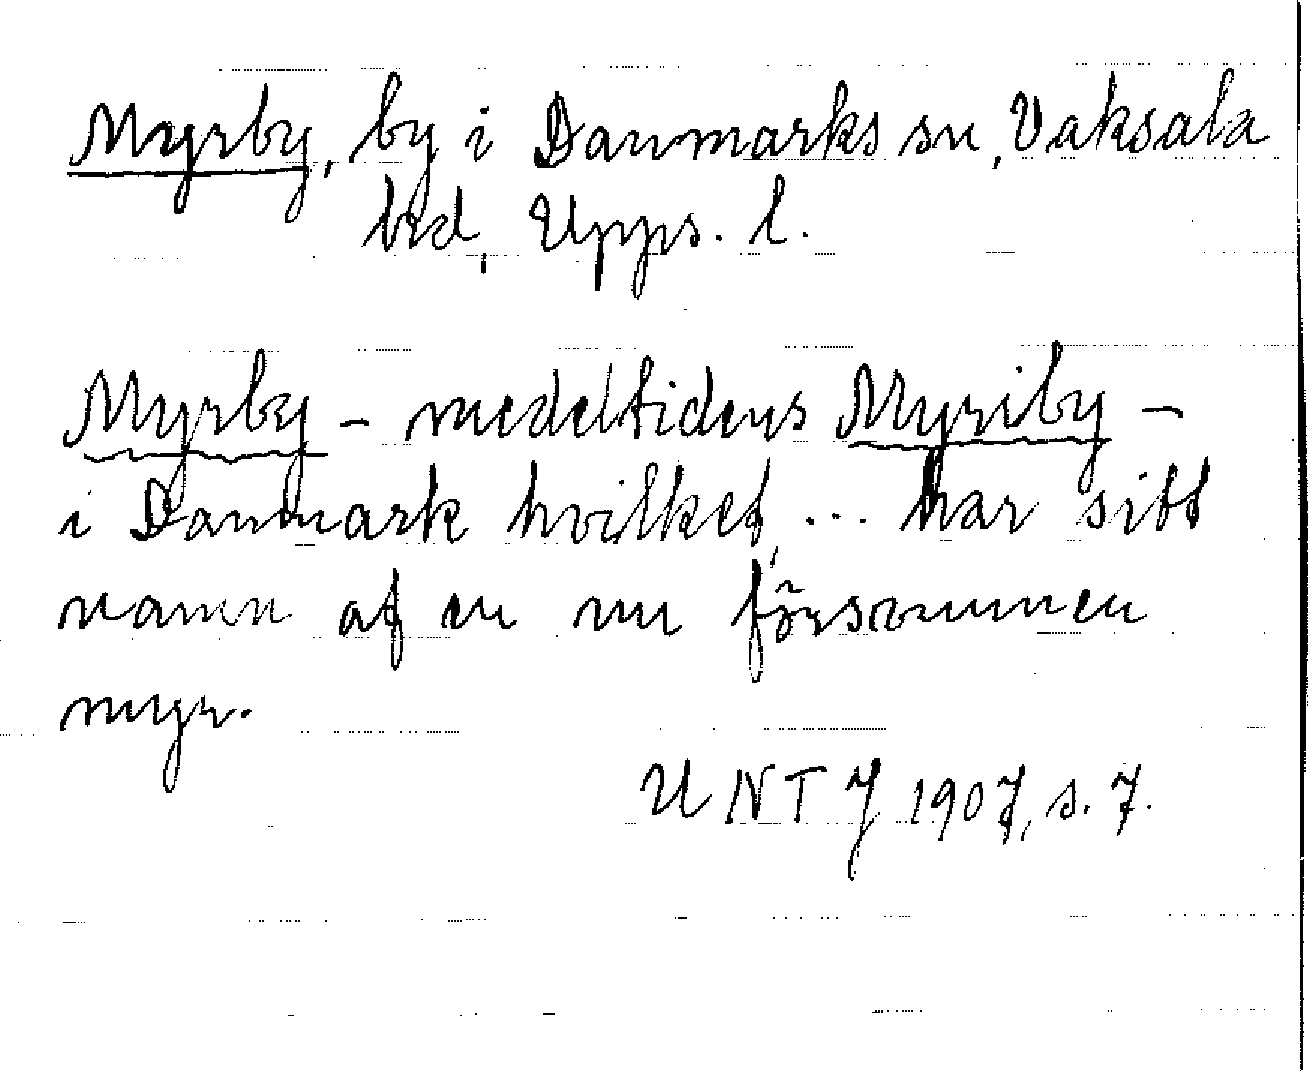 Myrby, by i Danmarks sn, Vaksala
hd, Upps. l.
Myrby – medeltidens Myriby –
i Danmark hvilket, ... har sitt
namn af en nu försvunnen
myr.
UNTJ 1907, s. 7.